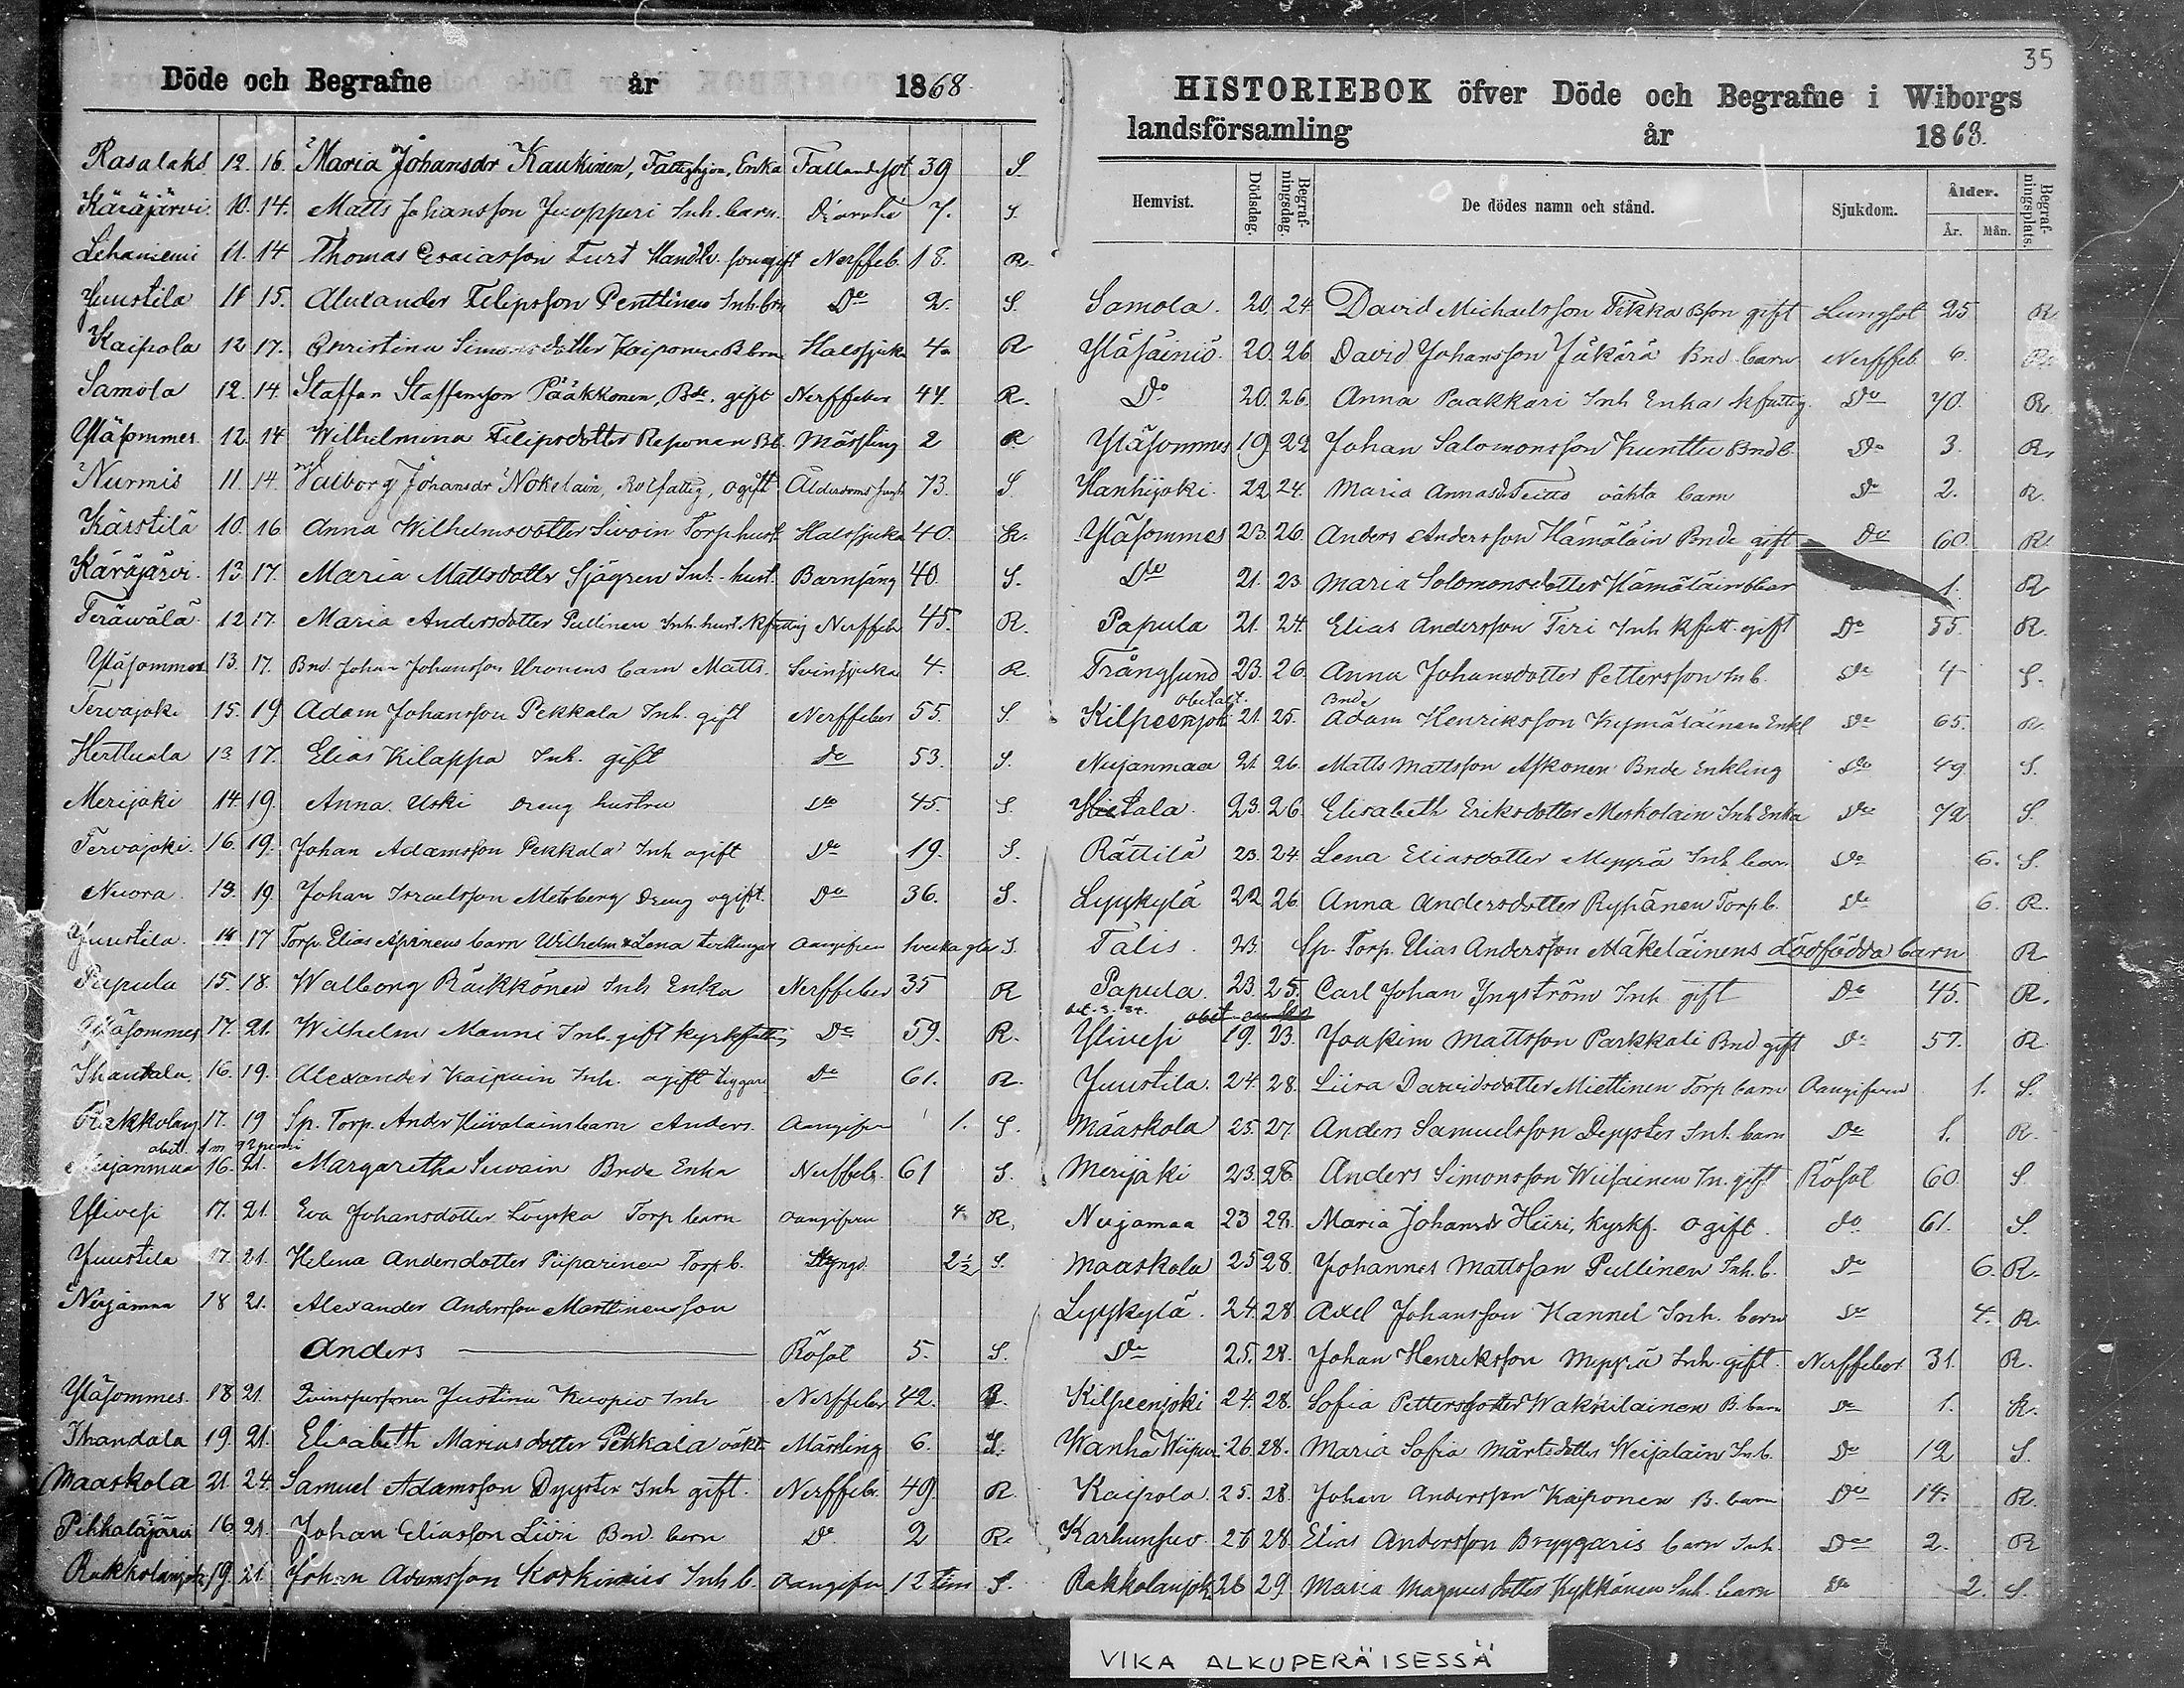 Döde och Begrafne år 1868.
Rasalaks 12. 16. Maria Johansdr Kaukinen, Fattighjon, Enka Fallandesot 39 S.
Käräjärvi 10. 14. Matts Johansson Juopperi Inh. barn. Diarrhé 7. S.
Lihaniemi 11. 14 Thomas Esaiasson Turt Handlr. son ogift Nerffeb. 18. R.
Juustila 11 15. Alexander Filipsson Penttinen Inh. brn Do 2. S.
Kaipola 12 17. Christina Simonsdotter Kaiponen B. brn Halssjuka 4 R
Samola 12. 14. Staffan Staffansson Pääkkönen, Bde. gift Nerffeber 44. R.
Yläsommes 12. 14 Wilhelmina Filipsdotter Reponen Bb. Mässling 2 R
Nurmis 11. 14. Valborg Johansdr Nokelain, Rotfattig, ogift Ålderdoms 73. S.
Kärstilä 10. 16 Anna Wilhelmsdotter Sivoin Torp hust. Halssjuka 40. R.
Käräjärvi. 13. 17. Maria Mattsdotter Sjögren Inh. hust. Barnsäng 40. S.
Teräwälä 12 17. Maria Andersdotter Pullinen Inh. hust. kfattig Nerffeb 45. R.
Yläsommes 13. 17. Bnd. Johan Johansson Uronens barn Matts. 4. R.
Tervajoki 15. 19. Adam Johansson Pekkala Inh. gift Nerffeber 55. S.
Herttuala 13. 17. Elias Kilappa Inh. gift do 53. S.
Merijoki 14. 19. Anna Uski Dreng hustru do 45. S.
Tervajoki. 16. 19. Johan Adamsson Pekkala Inh ogift Do 19. S.
Nuora 19. Johan Israelsson Metsberg Dreng ogift. Do 36. S.
Juustila. 14 17 Torp. Elias barn Wilhelm & Lena tvillingar oangifven S.
Papula 15. 18. Walborg Räikkönen Inh Enka Nerffeber 35 R
Yläsommes 17. 21. Wilhelm Manni Inh. gift kyrkfattig Do 59. R.
Ihantala. 16. 19. Alexander Kaipain Inh. ogift tiggare Do 61. R.
Rakkolanj 17. 19 Sp. Torp. Anders Hiivalains barn Anders. Oangifven 1. S.
Nuijanmaa 16. 21. Margaretha Suvain Bnde Enka Nerffeb. 61 S.
Ylivesi 17. 21. Eva Johansdotter Löyska Torp barn oangifven 4. R.
Juustila 17. 21. Helena Andersdotter Piiparinen Torp b. Styng 2½ S.
Nuijamaa 18 21. Alexander Andersson Marttinens son
Anders Rösot 5. S.
Yläsommes. 18 21. Qvinspersonen Justina Kuopio Inh Nerffeber 42. R.
Ihandala 19. 21. Elisabeth Mariasdotter Pekkala oäkt. Mässling 6. S.
Maaskola 21. 24. Samuel Adamsson Dyyster Inh gift. Nerffeb. 49. R.
Pihkalajärvi 16. 21. Johan Eliasson Liiri Bnd. barn Do 2 R.
Rakkolanjoki 19. 21. Johan Adamsson Inh b. Oangifven 12 tim S.
35
HISTORIEBOK öfver Döde och Begrafne i Wiborgs
landsförsamling år 1868.
Hemvist. Dödsdag. Begrafningsdag. De dödes namn och stånd. Sjukdom. Ålder. År. Mån. Begrafningsplats.
Samola. 20. 24. David Michaelsson Tikka Bson gift Lungsot 25 R
Yläsäiniö. 20. 26 David Johansson Jäkärä Bnd barn Nerffeb. 6. R.
Do 20. 26. Anna Paakkari Inh Enka kfattig. Do 70. R.
Yläsommes 19. 22 Johan Salomonsson Kunttu Bnd b. Do 3. R.
Hanhijoki. 22 24. Maria Annasd. oäkta barn Do 2. R.
Yläsommes 23. 26. Anders Andersson Hämäläin Bnde gift Do 60. R.
Do 21. 23. Maria Solomonsdotter Hämäläin bbar 1. R
Papula 21. 24. Elias Andersson Tiri Inh kfatt. gift Do 55. R.
Trångsund 23. 26. Anna Johansdotter Pettersson In b. Do 4 S.
obetalt. Bnde
Kilpeenjoki 21. 25. Adam Henriksson Kymäläinen Enkl Do 65. R.
Nuijanmaa 21. 26. Matts Mattsson Askonen Bnde Enkling Do 49 S.
Hietala. 23. 26. Elisabeth Eriksdotter Meskolain Inh Enka Do 72 S.
Rättilä 23. 24. Lena Eliasdotter Myyrä Inh. barn Do 6. S.
Lyykylä 22. 26. Anna Andersdotter Ryhänen Torp b. Do 6. R.
Talis. 23. Sp. Torp. Elias Andersson Mäkeläinens dödfödda barn R
Papula. 23. 25. Carl Johan Yngström Inh. gift Do 45. R.
Ylivesi 19. 23. Joakim Mattsson Parkkali Bnd gift Do 57. R
Juustila. 24. 28. Liisa Davidsdotter Miettinen Torp barn Oangifven 1. S.
Maaskola 25. 27 Anders Samuelsson Dyyster Inh. barn Do 1. R.
Merijoki 23. 28. Anders Simonsson Wiisainen In. gift Rösot 60 S.
Nuijamaa 23 28. Maria Johansdr Hiiri, kyrkf. ogift. do 61. S.
Maaskola 25 28. Johannes Mattsson Pullinen Inh. b. Do 6. R.
Lyykylä. 24. 28. Axel Johansson Hannel Inh. barn Do 4. R.
Do 25. 28. Johan Henriksson Myyrä Inh. gift. Nerffeber 31. R.
Kilpeenjoki 24. 28. Sofia Pettersdotter Wakkilainen B. barn Do 1. R.
Wanha Wiipuri 26. 28. Maria Sofia Mårtsdotter Weijalain In. b. Do 12 S.
Kaipola. 25. 28. Johan Andersson Kaiponen B. barn Do 14. R.
Karhunsuo. 26 28. Elias Andersson Bryggaris barn Inh. Do 2. R
Rakkolanjoki 26 29. Maria Magnusdotter Kykkänen Inh. barn Do 2. S.
VIKA ALKUPERÄISESSÄ